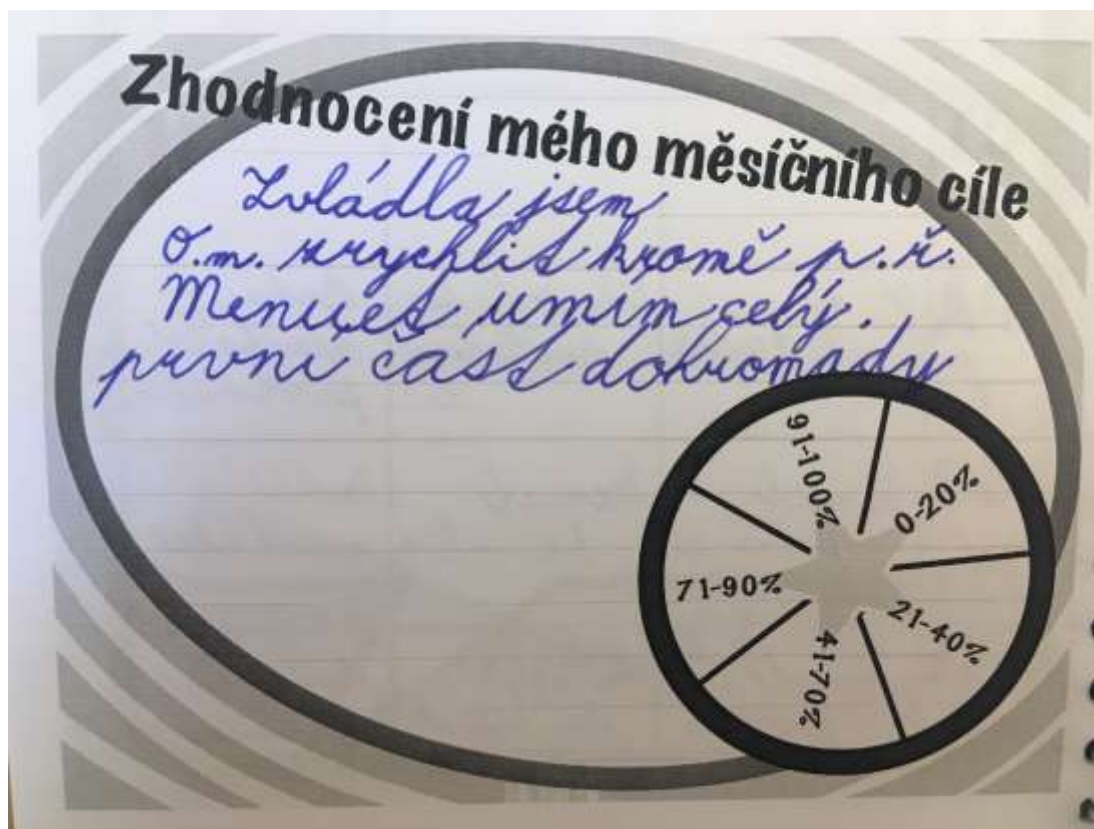 Zhodnocení mého měsíčního cíle
Zvládla jsem
O.m. zrychlit kromě p.ř.
Menuet umím celý.
první část dohromady
91-100%
0-20%
71-90%
21-40%
41-70%